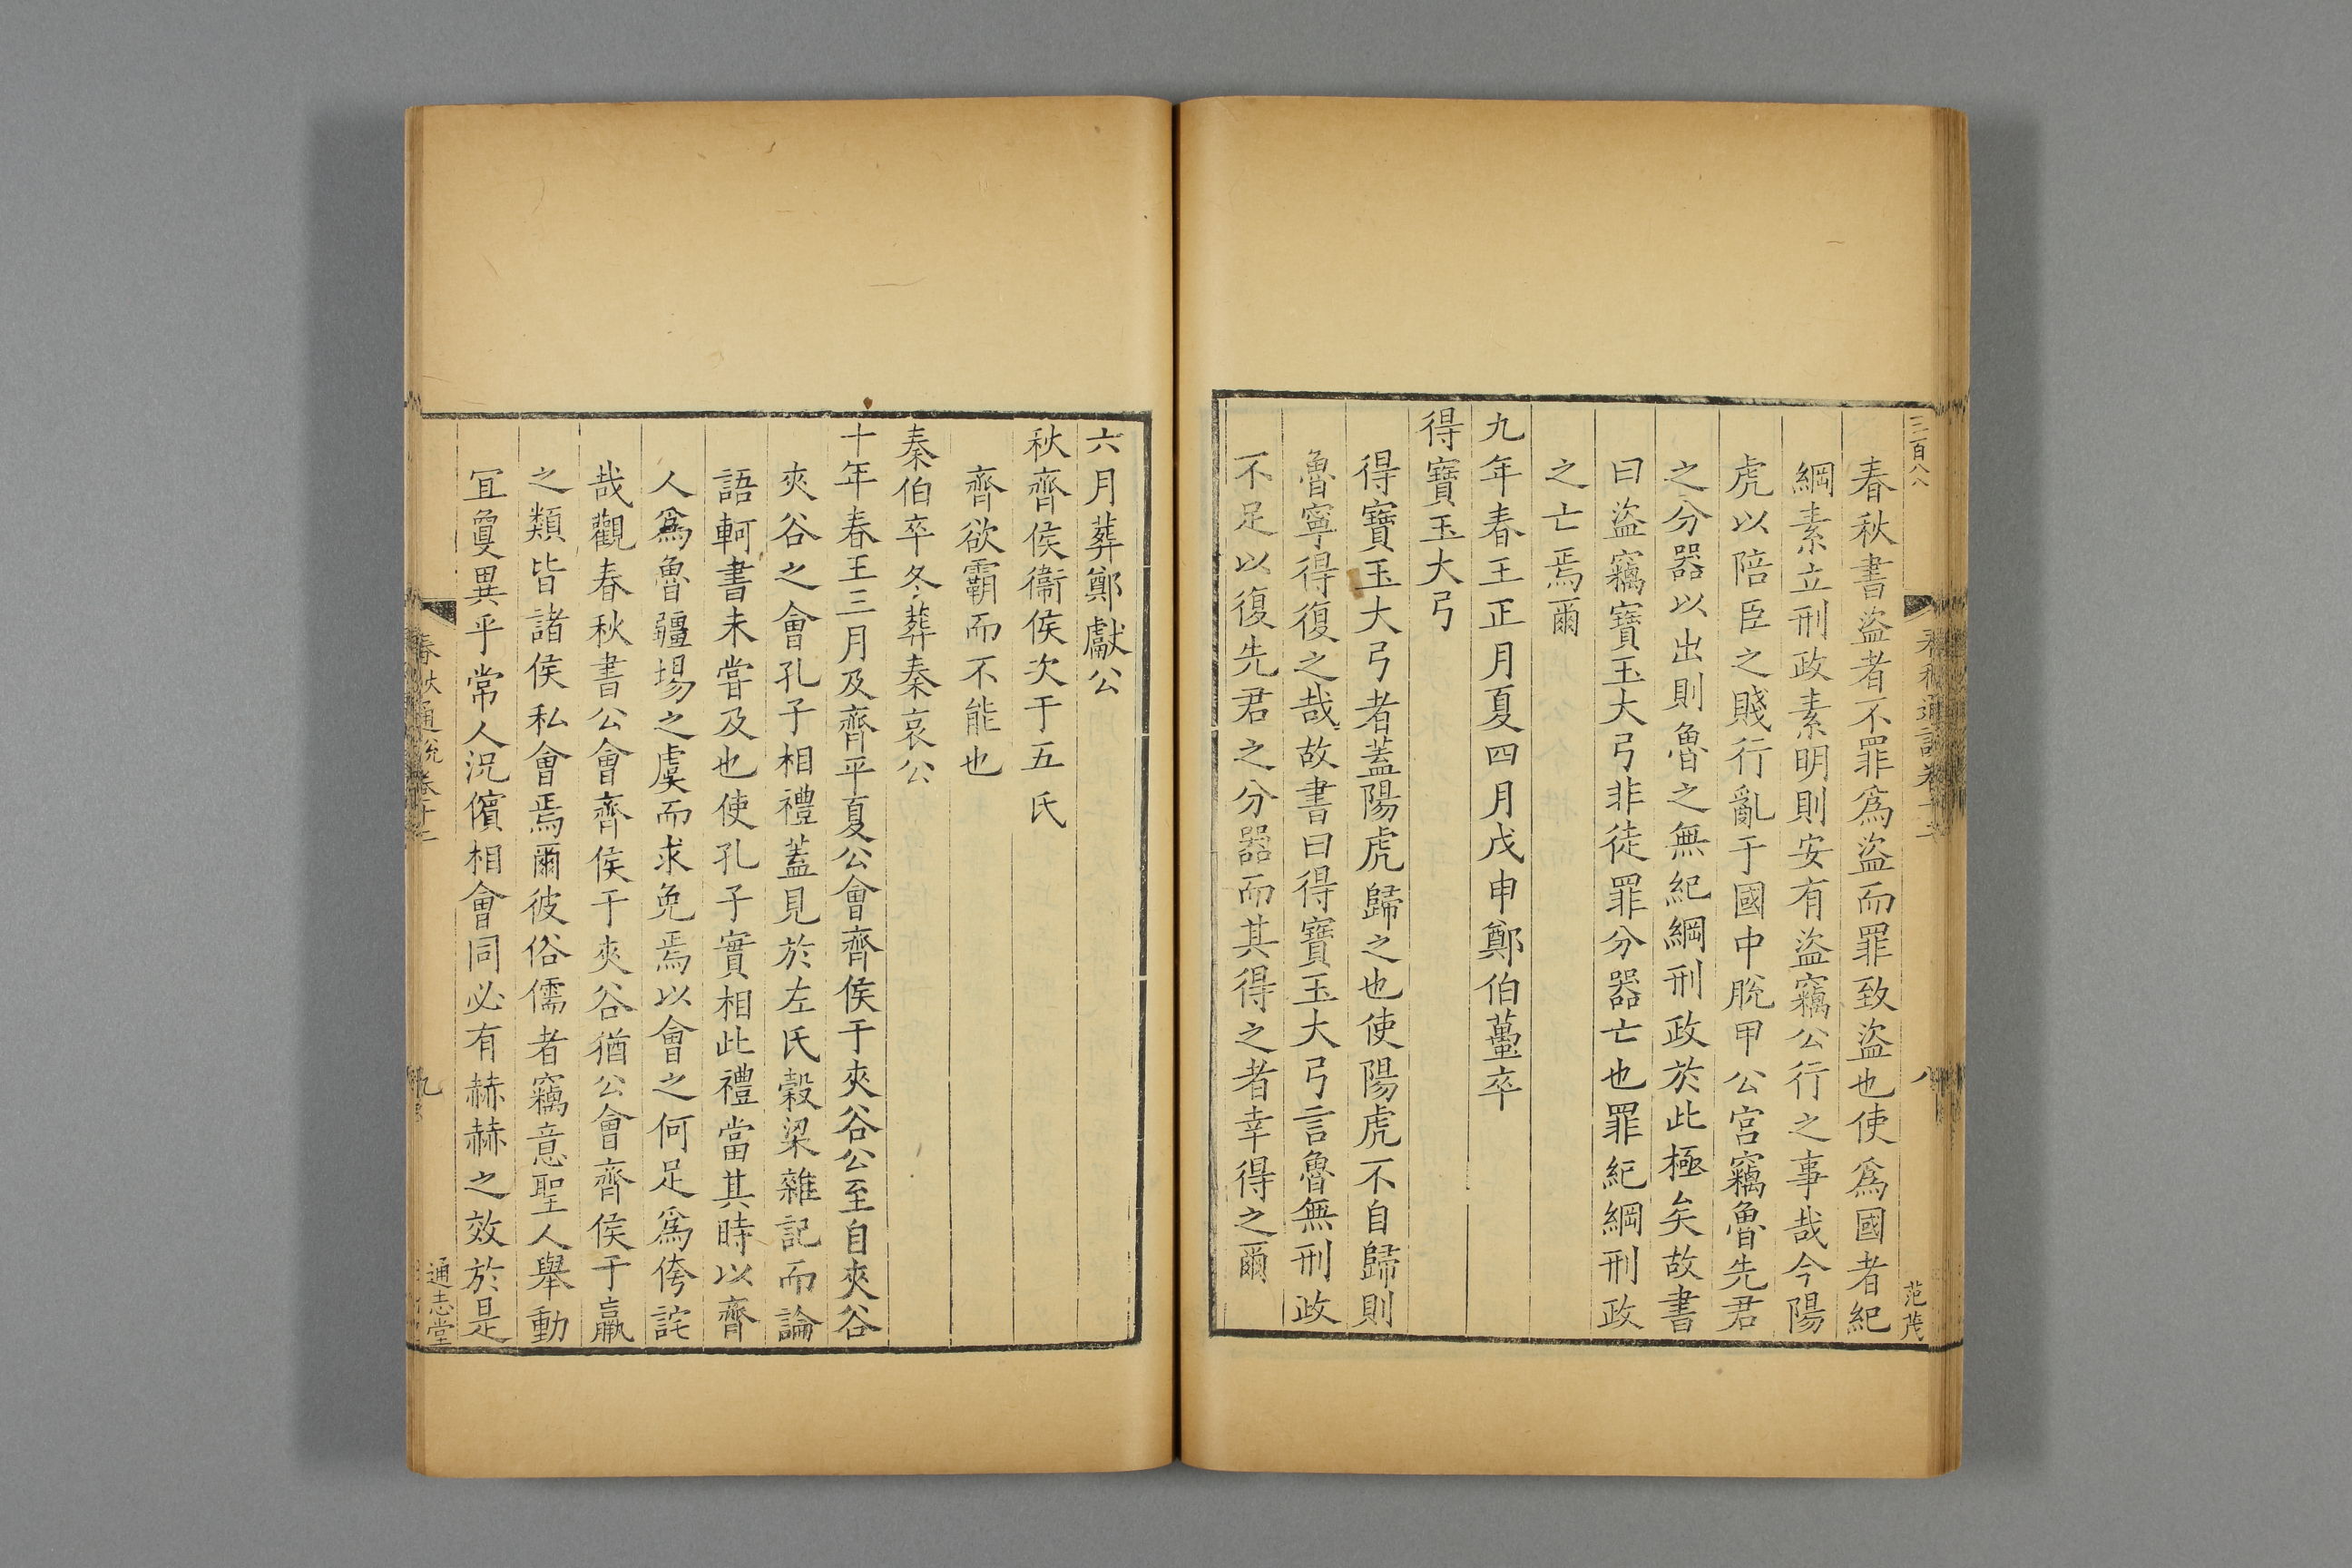 三百八八
春秋通說卷十二
八
范茂
春秋書盜者不罪爲盜而罪致盜也使爲國者紀
綱素立刑政素明則安有盜竊公行之事哉今陽
虎以陪臣之賤行亂于國中脫甲公宮竊魯先君
之分器以出則魯之無紀綱刑政於此極矣故書
曰盜竊寶玉大弓非徒罪分器亡也罪紀綱刑政
之亡焉爾
九年春王正月夏四月戊申鄭伯蠆卒
得寶玉大弓
得寶玉大弓者蓋陽虎歸之也使陽虎不自歸則
魯寧得復之哉故書曰得寶玉大弓言魯無刑政
不足以復先君之分器而其得之者幸得之爾
六月葬鄭獻公
秋齊侯衞侯次于五氏
齊欲霸而不能也
秦伯卒冬葬秦哀公
十年春王三月及齊平夏公會齊侯于夾谷公至自夾谷
夾谷之會孔子相禮蓋見於左氏穀梁雜記而論
語軻書未嘗及也使孔子實相此禮當其時以齊
人爲魯疆場之虞而求免焉以會之何足爲侉詫
哉觀春秋書公會齊侯于夾谷猶公會齊侯于嬴
之類皆諸侯私會焉爾彼俗儒者竊意聖人舉動
宜敻異乎常人況儐相會同必有赫赫之效於是
春秋通說卷十二
九
通志堂